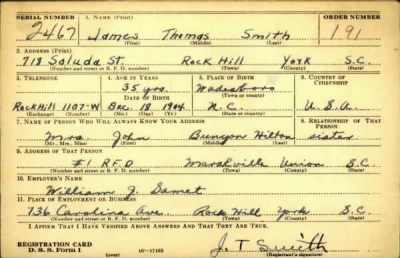 SERIAL NUMBER 1. NAME (Print) ORDER NUMBER
2467 James Thomas Smith 191
(First) (Middle) (Last)
2. ADDRESS (Print)
718 Saluda St. Rock Hill York S.C.
(Number and street or R. F. D. number) (Town) (County) (State)
3. TELEPHONE 4. AGE IN YEARS 5. PLACE OF BIRTH 6. COUNTRY OF CITIZENSHIP
35 yrs. Wadesboro
DATE OF BIRTH (Town or county)
Rock Hill 1107-W Dec. 18 1904 N.C. U.S.A.
(Exchange) (Number) (Mo.) (Day) (Yr.) (State or country)
7. NAME OF PERSON WHO WILL ALWAYS KNOW YOUR ADDRESS 8. RELATIONSHIP OF THAT PERSON
Mrs. John Bunyon Hilton sister
(Mr., Mrs., Miss) (First) (Middle) (Last)
9. ADDRESS OF THAT PERSON
#1 R.F.D Marshville Union S.C.
(Number and street or R. F. D. number) (Town) (County) (State)
10. EMPLOYER'S NAME
William J.
11. PLACE OF EMPLOYMENT OR BUSINESS
736 Carolina Ave. Rock Hill York S.C.
(Number and street or R. F. D. number) (Town) (County) (State)
I AFFIRM THAT I HAVE VERIFIED ABOVE ANSWERS AND THAT THEY ARE TRUE.
J. T Smith
REGISTRATION CARD
D. S. S. Form 1 (over) 16-17105 (Registrant's signature)